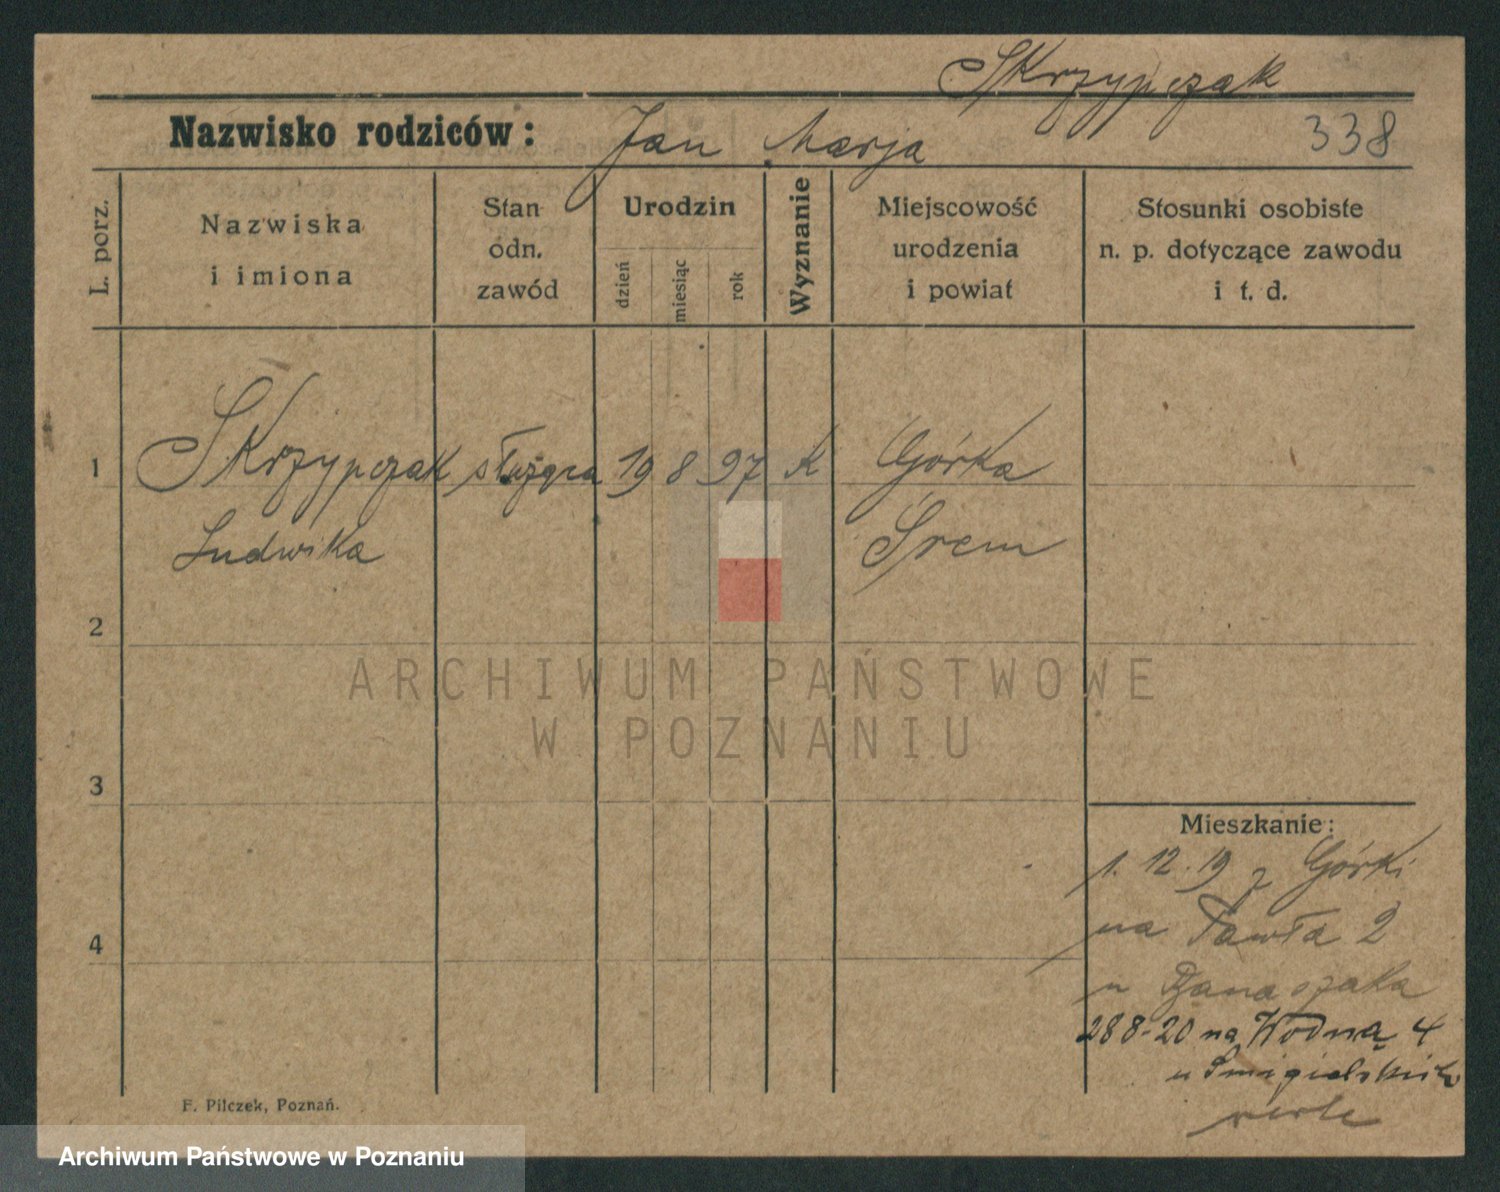 Skrzypczak
Nazwisko rodziców: Jan Marja 338
L. porz.
Nazwiska
i imiona
Stan
odn.
zawód
Urodzin
dzień
miesiąc
rok
Wyznanie
Miejscowość
urodzenia
i powiat
Stosunki osobiste
n. p. dotyczące zawodu
i t. d.
1 Skrzypczak służąca 19 8 97 K Górka
Ludwika Śrem
2
ARCHIWUM PAŃSTWOWE
W POZNANIU
3
Mieszkanie:
1. 12. 19 z Górki
na Pawła 2
4
u Banaszaka
28 8-20 na Wodną 4
u
verte
F. Pilczek, Poznań.
Archiwum Państwowe w Poznaniu